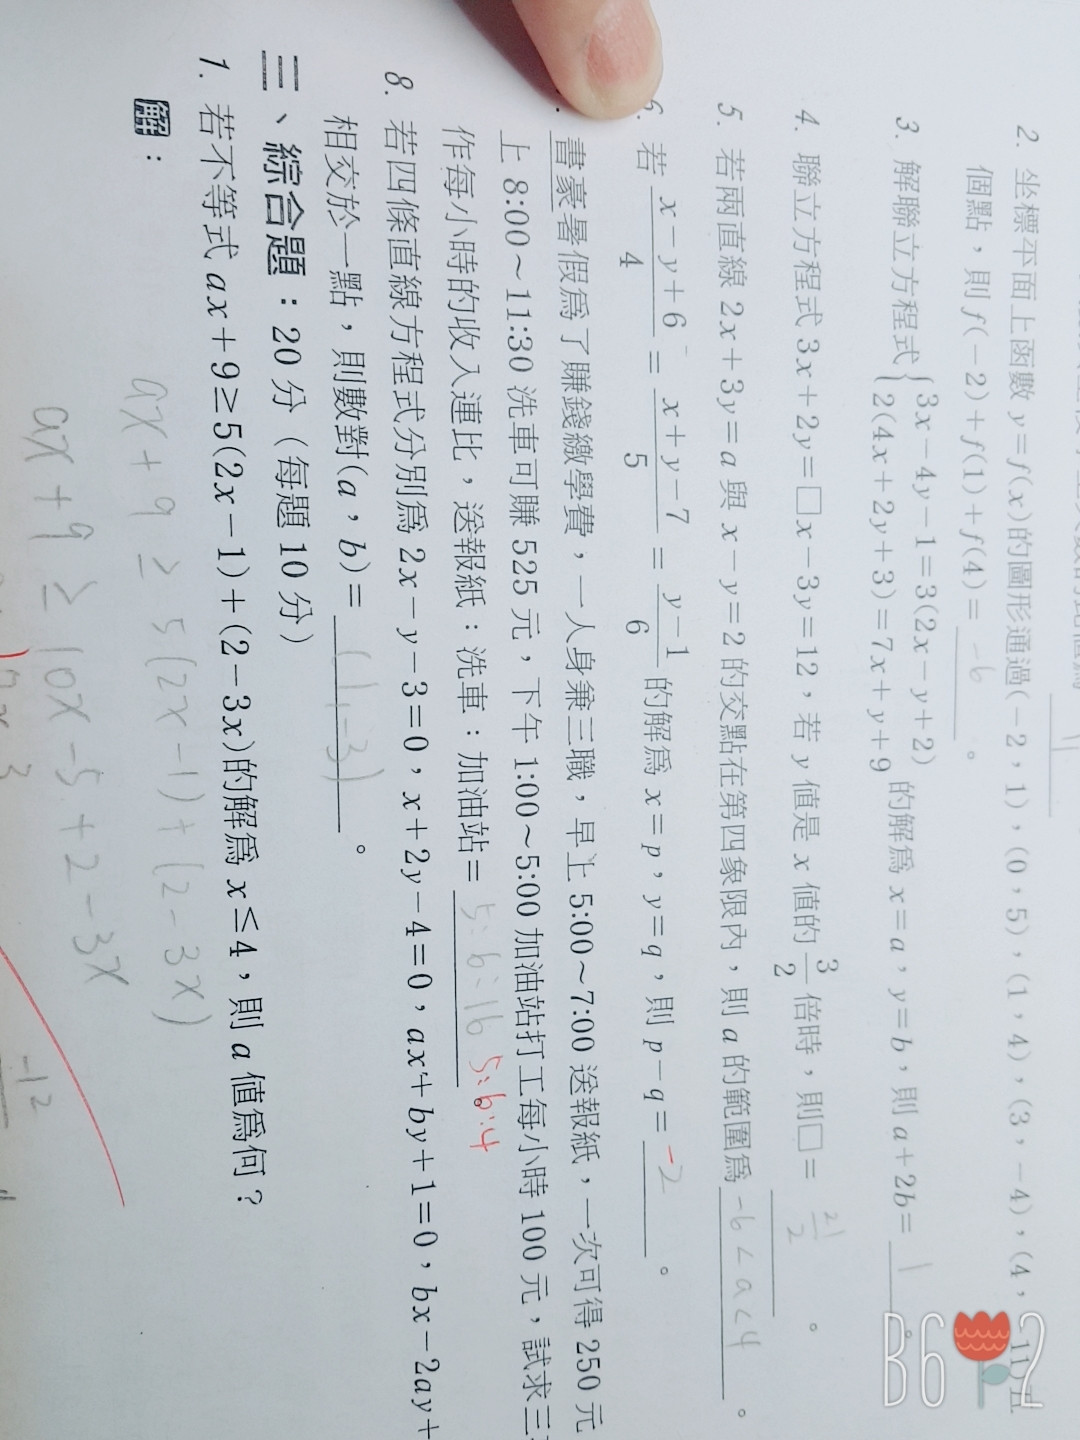 2. 坐標平面上函數 y=f(x)的圖形通過(-2,1),(0,5),(1,4),(3,-4),(4,-11)五
個點,則f(-2)+f(1)+f(4)= -6 。
3. 解聯立方程式{3x-4y-1=3(2x-y+2)
2(4x+2y+3)=7x+y+9 的解為 x=a,y=b,則 a+2b= 1 。
4. 聯立方程式 3x+2y=□x-3y=12,若 y 值是 x 值的 3/2 倍時,則□= 21/2 。
5. 若兩直線 2x+3y=a 與 x-y=2 的交點在第四象限內,則 a 的範圍為 -6<a<4 。
6. 若 (x-y+6)/4 = (x+y-7)/5 = (y-1)/6 的解為 x=p,y=q,則 p-q= -2 。
書豪暑假為了賺錢繳學費,一人身兼三職,早上 5:00~7:00 送報紙,一次可得 250 元
上 8:00~11:30 洗車可賺 525 元,下午 1:00~5:00 加油站打工每小時 100 元,試求三
作每小時的收入連比,送報紙:洗車:加油站= 5:6:16 5:6:4
8. 若四條直線方程式分別為 2x-y-3=0,x+2y-4=0,ax+by+1=0,bx-2ay+
相交於一點,則數對(a,b)= (1,-3) 。
三、綜合題:20 分(每題 10 分)
1. 若不等式 ax+9≥5(2x-1)+(2-3x)的解為 x≤4,則 a 值為何?
解:
ax+9≥5(2x-1)+(2-3x)
ax+9≥10x-5+2-3x
-12
B612